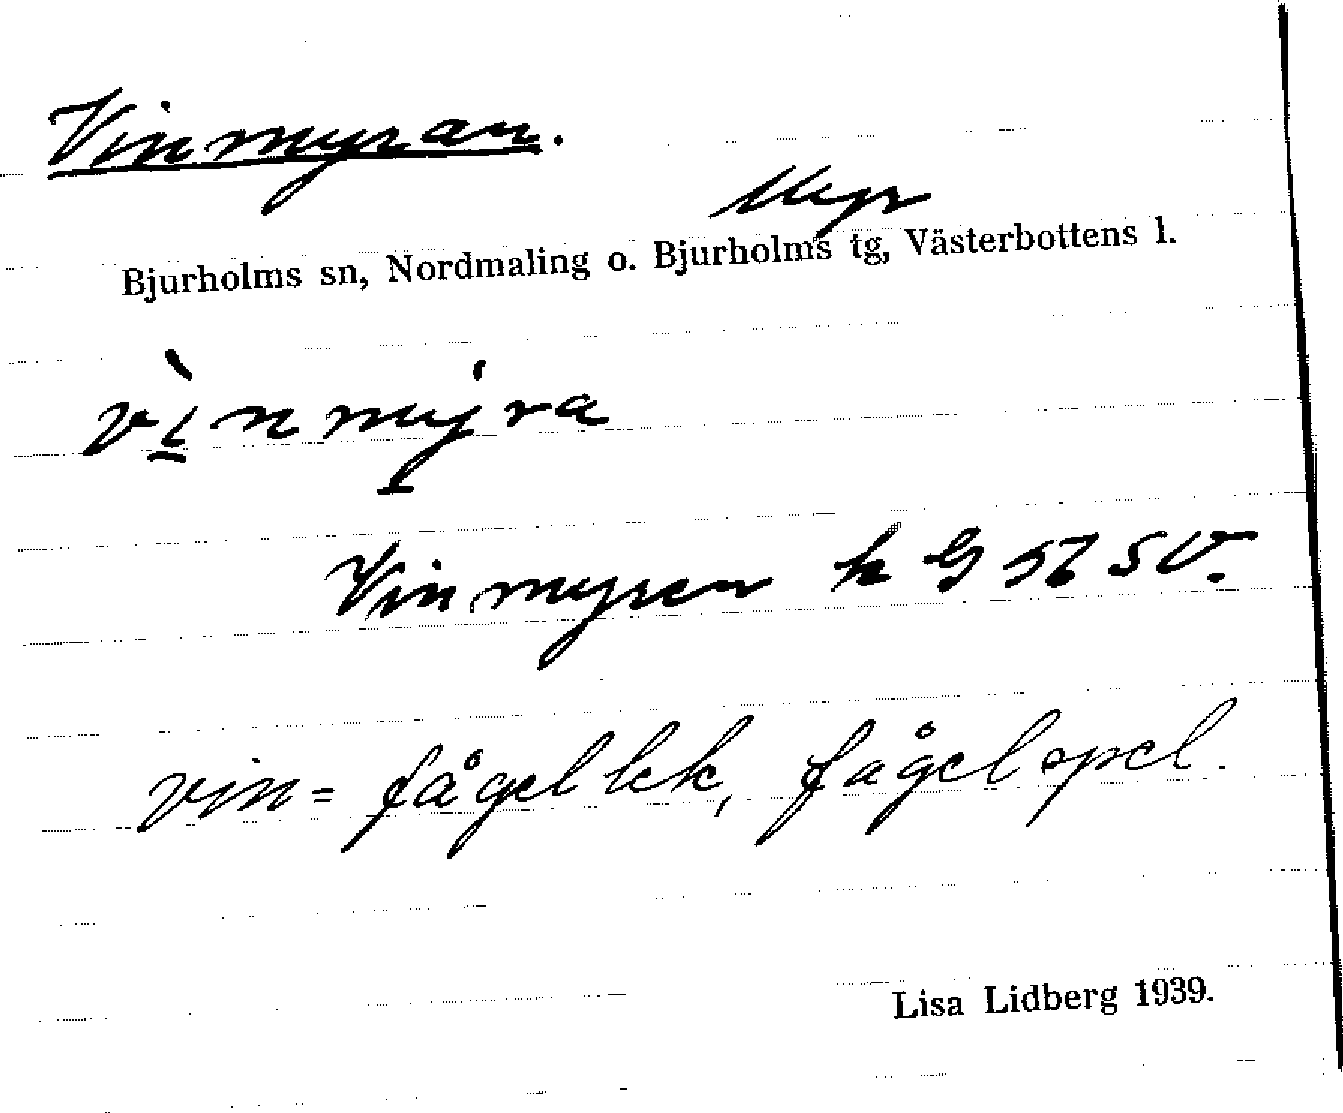 Vinmyran.
Myr
Bjurholms sn, Nordmaling o. Bjurholms tg, Västerbottens l.
vìnmýra
Vinmyren k G 56 SV.
vin = fågellek, fågelspel.
Lisa Lidberg 1939.